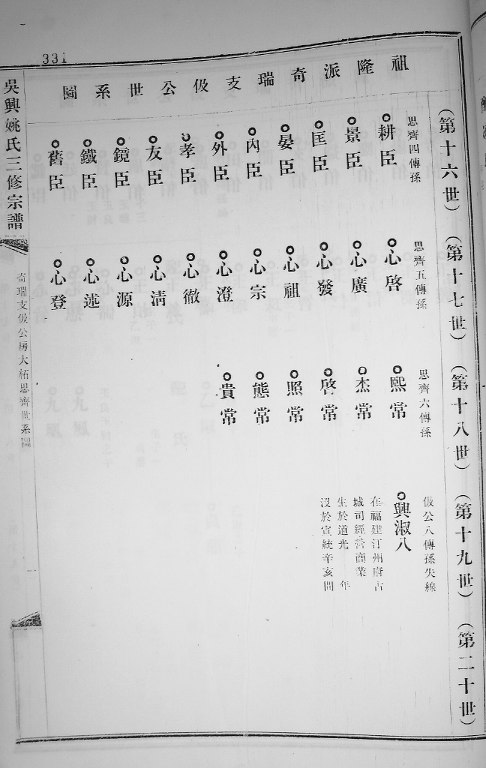 331
祖隆派奇瑞支伋公世系圖
(第十六世)
(第十七世)
(第十八世)
(第十九世)
(第二十世)
思齊四傳孫
思齊五傳孫
思齊六傳孫
伋公八傳孫失線
耕臣
心啓
熙常
興淑八
在福建汀州府古
城司經營商業
生於道光 年
沒於宣統辛亥間
景臣
心廣
杰常
匡臣
心發
啓常
晏臣
心祖
照常
內臣
心宗
熊常
外臣
心澄
貴常
孝臣
心徹
友臣
心清
鏡臣
心源
鐵臣
心蓮
舊臣
心登
吳興姚氏三修宗譜
奇瑞支伋公房大柘思齊世系圖